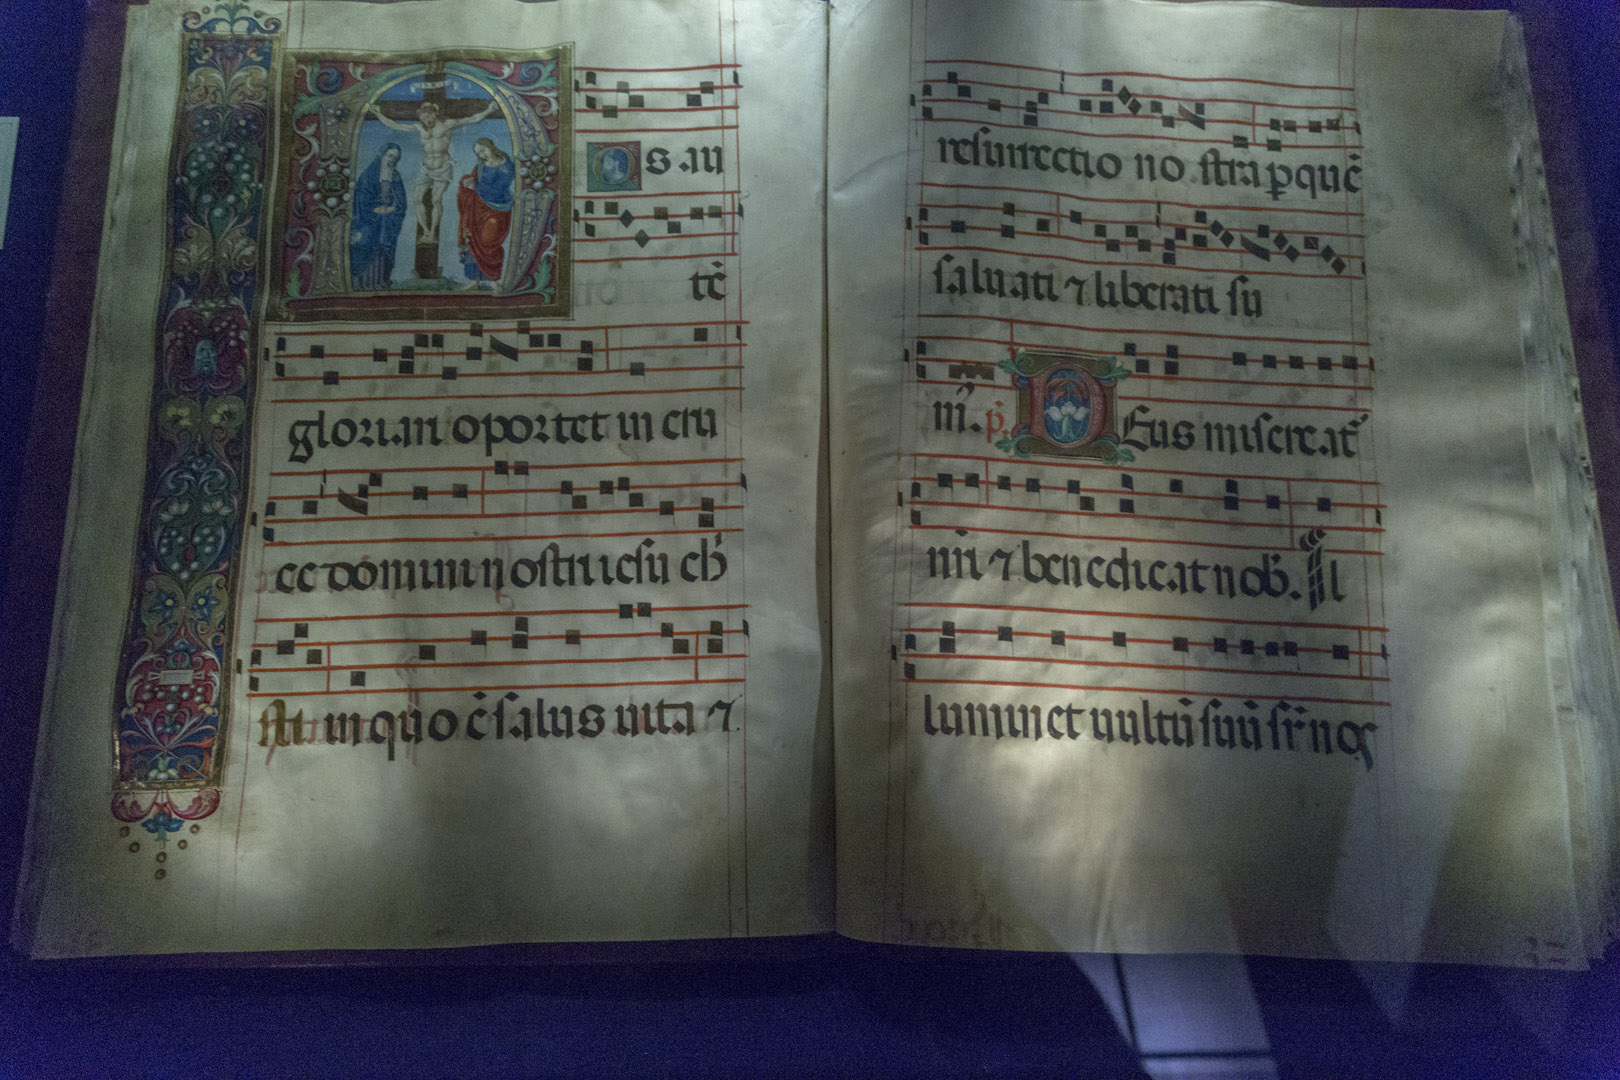 NOs au
tē
gloriari oportet in cru
ce domini nostri iesu ch̄
sti in quo ē salus uita ⁊
resurrectio nostra ꝑ quē
saluati ⁊ liberati su
m᾽. p̄. DEus misereat᾽
nr̄i ⁊ benedicat nob̄. Il
luminet uultū suū sr̄ nos